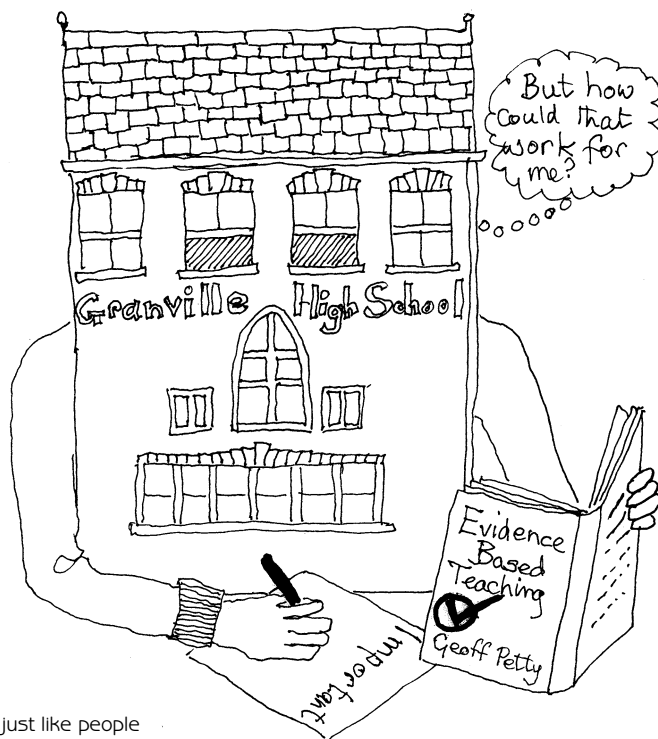 But how
could that
work for
me?
Granville High School
Evidence
Based
Teaching
Geoff Petty
Important
just like people